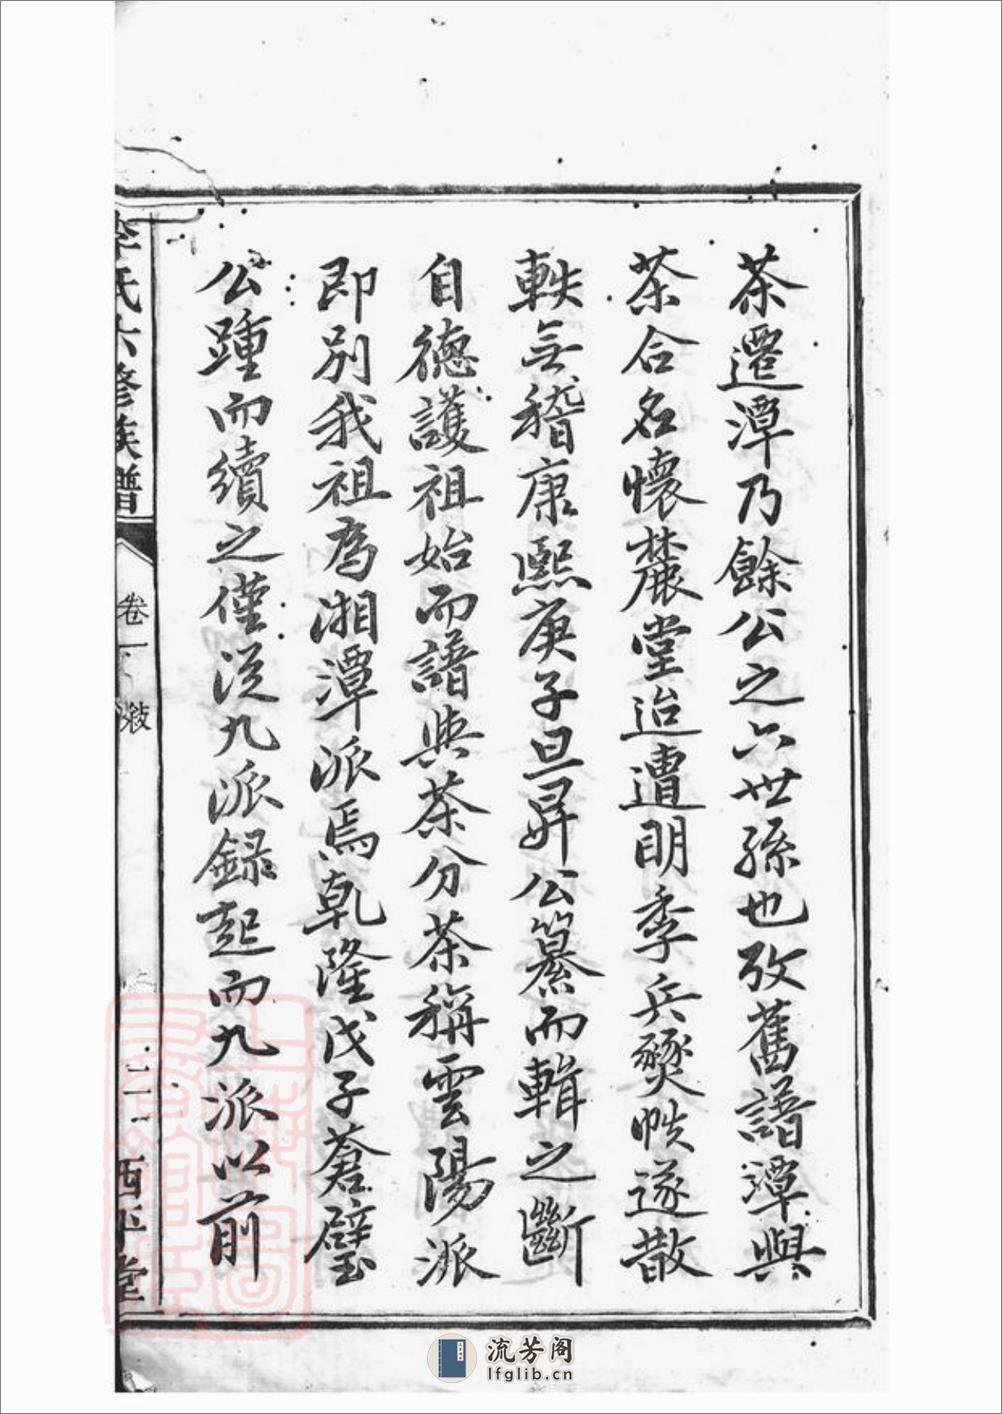 茶遷潭乃餘公之六世孫也攷舊譜潭與
茶合名懷麓堂迨遭明季兵燹帙遂散
軼無稽康熙庚子旦昇公纂而輯之斷
自德護祖始而譜與茶分茶稱雲陽派
即別我祖為湘潭派焉乾隆戊子蒼璧
公踵而續之僅從九派録起而九派以前
李氏六修族譜
卷一
敘
二
西平堂
流芳阁
lfglib.cn